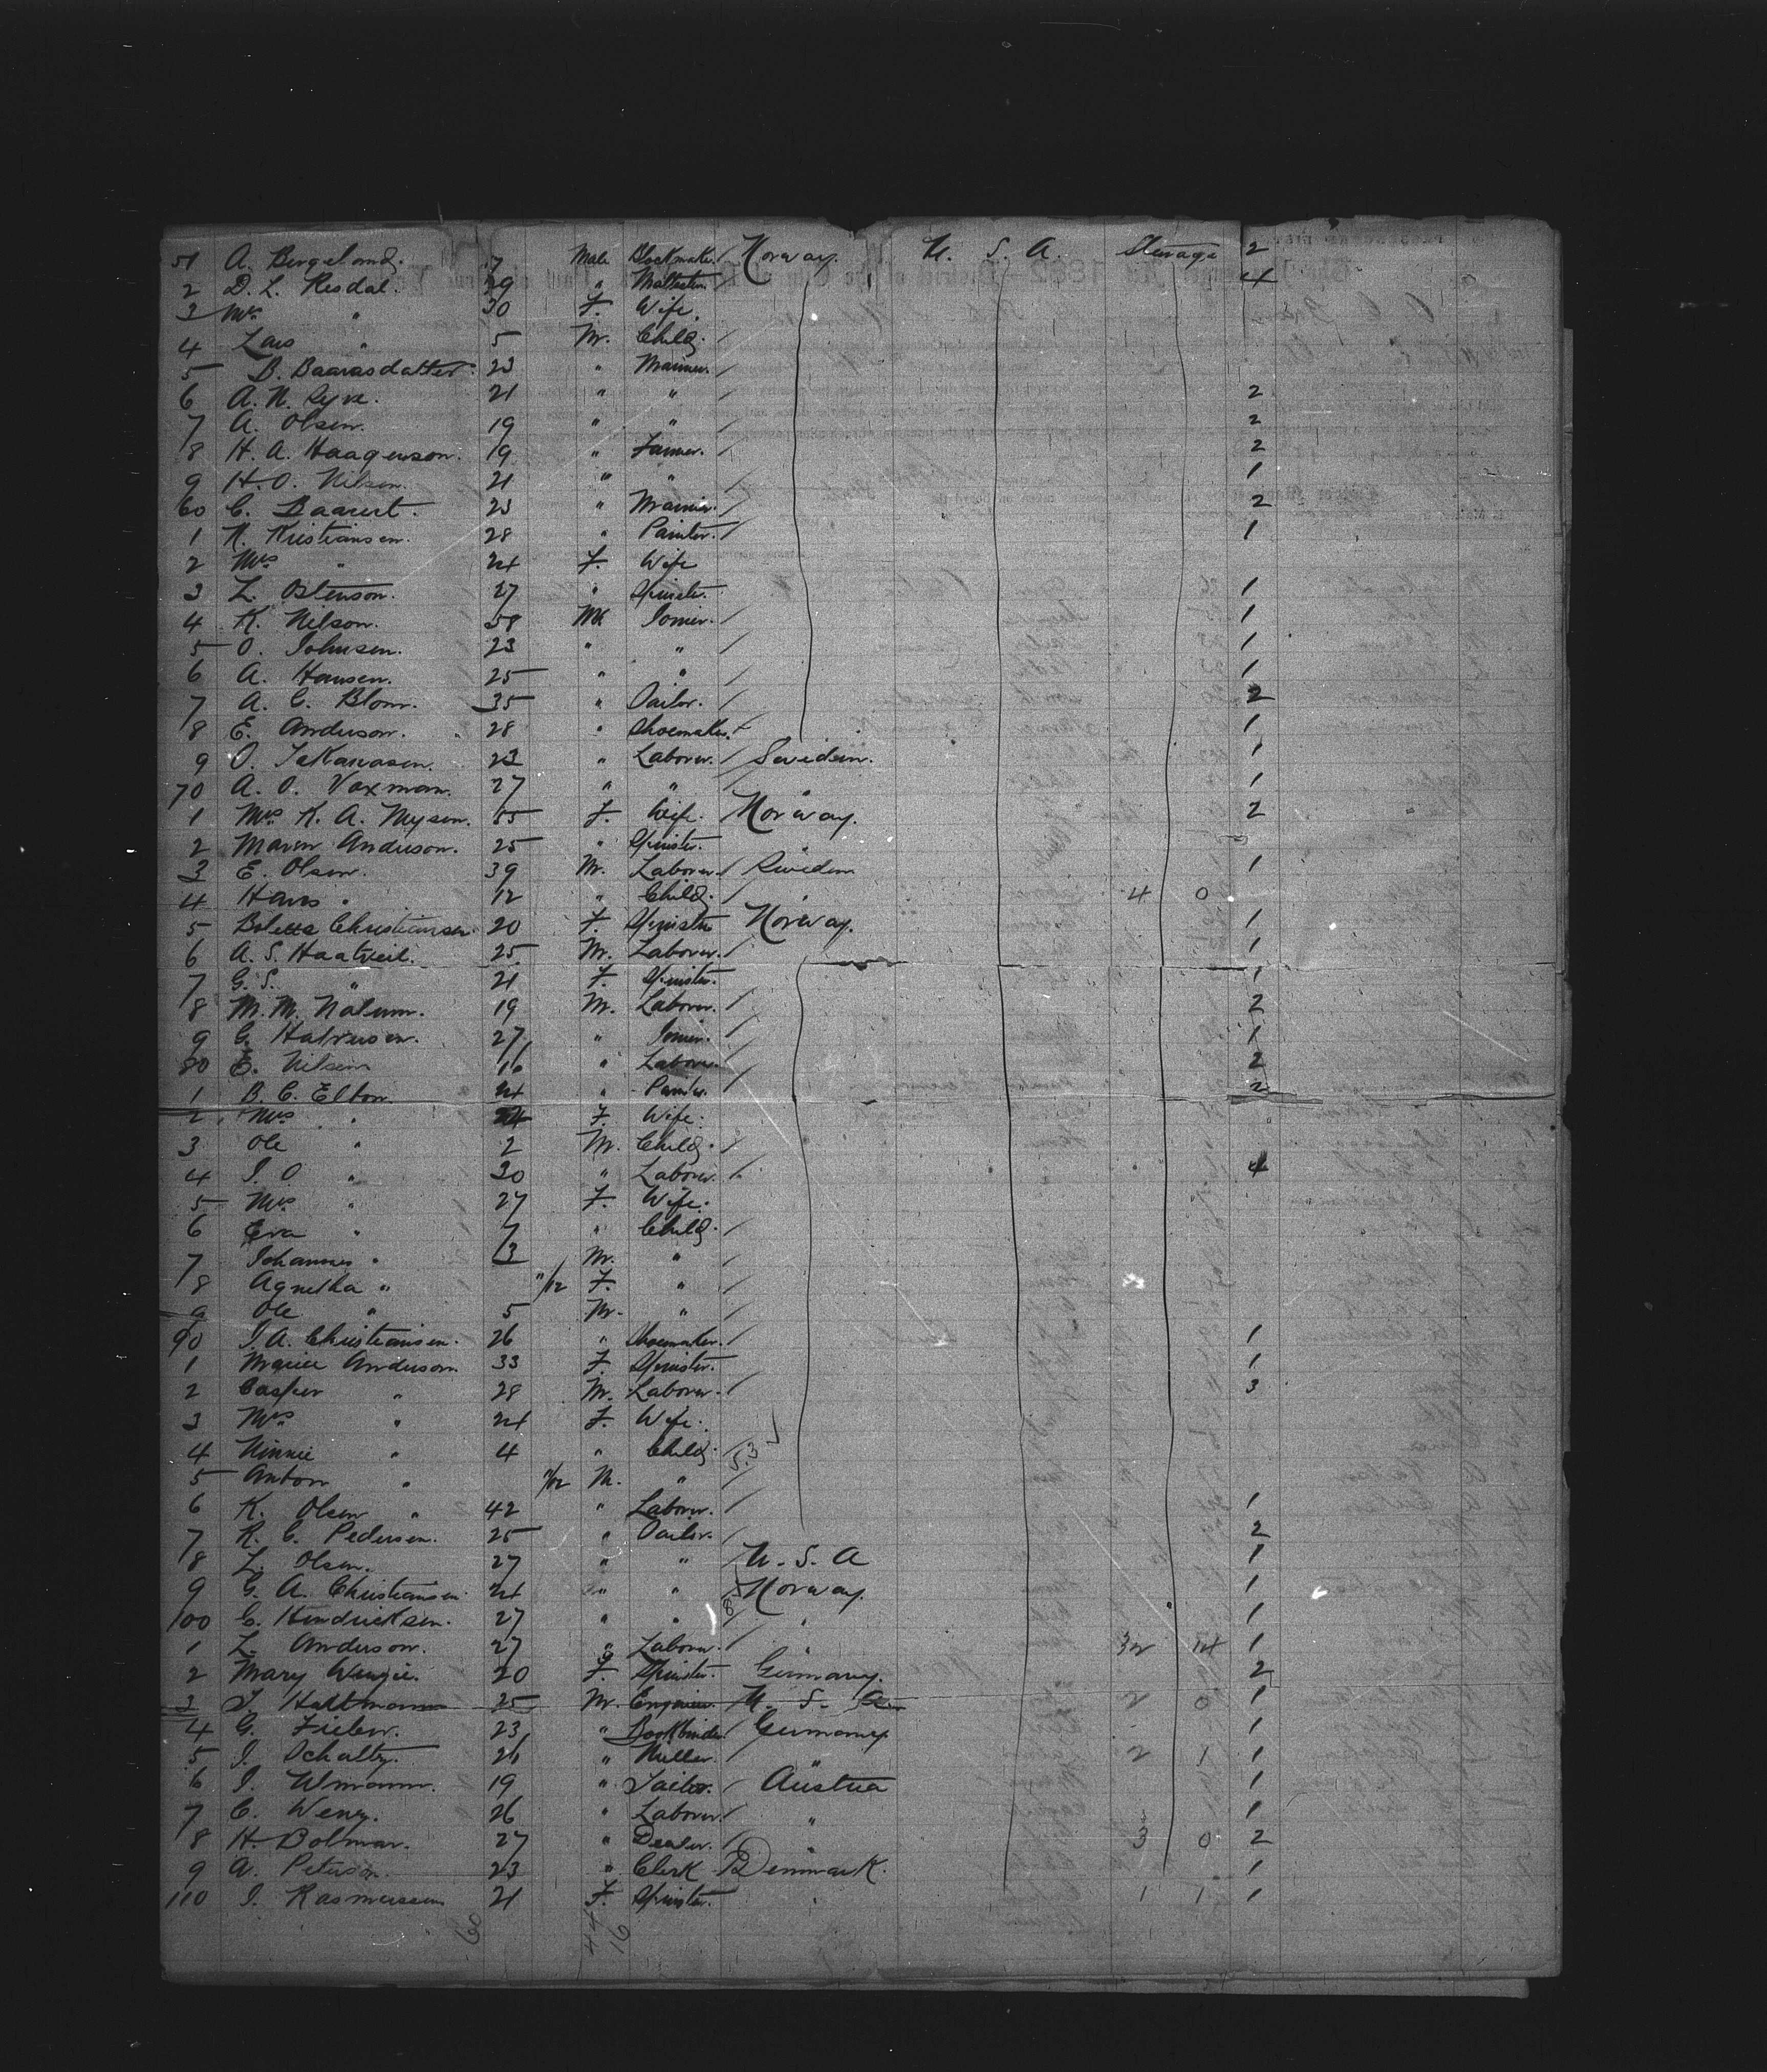 51 A. Bergeland. 7 Male Blockmaker Norway. U. S. A. Steerage 2
2 D. L. Resdal. 29 " 4
3 Mrs " 30 F. Wife.
4 Lars " 5 M. Child.
5 B. Baarasdatter. 23 " Mariner.
6 A. N. Lyve. 21 " " 2
7 A. Olsen. 19 " " 2
8 H. A. Haagenson. 19 " Farmer. 2
9 H. O. Nilsen. 21 " " 1
60 C. Baarert. 23 " Mariner. 2
1 K. Kristiansen. 28 " Painter. 1
2 Mrs " 24 F. Wife
3 L. Ostenson. 27 " Spinster. 1
4 K. Nilson. 58 M. Joiner. 1
5 O. Johnsen. 23 " " 1
6 A. Hansen. 25 " " 1
7 A. C. Blom. 35 " Sailor. 2
8 E. Anderson. 28 " Shoemaker. 1
9 O. 23 " Laborer. Sweden. 1
70 A. O. Vaxman. 27 " " 1
1 Mrs. K. A. Mysen. 55 F. Wife. Norway. 2
2 Maren Anderson. 25 " Spinster.
3 E. Olsen. 39 M. Laborer. Sweden 1
4 Hans " 12 " Child. 4 0
5 Boletta Christiansen 20 F. Spinster Norway. 1
6 A. S. Haatveit. 25. M. Laborer. 1
7 G. S. " 21 F. Spinster. 1
8 M. M. Nalum. 19 M. Laborer. 2
9 G. Halvrusen. 27 " Joiner. 1
80 E. Nilsen 16 " Laborer. 2
1 B. C. Elton. 24 " Painter. 2
2 Mrs " 24 F. Wife.
3 Ole " 2 M. Child.
4 J. O. " 30 " Laborer. 4
5 Mrs " 27 F. Wife.
6 Eva " 7 " Child.
7 Johannes " 3 M. "
8 Agnetha " 11/12 F. "
9 Ole " 5 M. "
90 J. A. Christiansen. 26 " Shoemaker. 1
1 Marie Anderson 33 F. Spinster. 1
2 Casper " 28 M. Laborer. 3
3 Mrs " 24 F. Wife.
4 Minnie " 4 " Child. 53
5 Anton " /12 M. "
6 K. Olsen " 42 " Laborer. 1
7 K. C. Pedersen. 25 " Sailor. 2
8 L. Olsen. 27 " " U. S. A 1
9 G. A. Christiansen. 24 " " Norway. 1
100 C. Hendricksen. 27 " " " 1
1 L. Anderson. 27 " Laborer. 32 14 1
2 Mary Wingie. 20 F. Spinster. Germany. 2
3 J. Hallmann 25 M. Engineer. U. S. A 2 0 1
4 G. Fieler. 23 " Bookbinder Germany 1
5 J. Schalty. 26 " Miller. 2 1 1
6 J. Wmann. 19 " Tailor. Austria 1
7 C. Weny. 26 " Laborer " 1
8 H. Bolmar. 27 " Dealer. " 3 0 2
9 A. Peterson. 23 " Clerk Denmark. 1
110 J. Rasmussen 21 F. Spinster. " 1 1 1
60 44 16